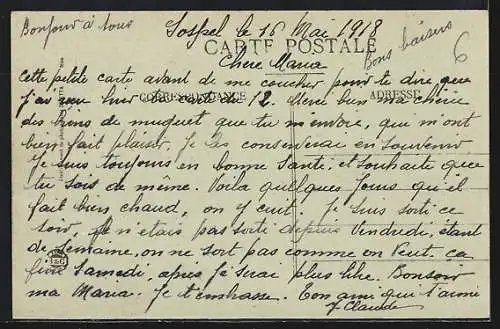 Bonjour à tous
Sospel le 16 Mai 1918
CARTE POSTALE
Bons baisers
6
Chère Maria
Cette petite carte avant de me coucher pour te dire que
CORRESPONDANCE
ADRESSE
j'ai reçu hier ta carte du 12. Merci bien ma chérie
des brins de muguet que tu m'envoie, qui m'ont
bien fait plaisir. Je les conserverai en souvenir
Je suis toujours en bonne santé, et souhaite que
tu sois de même. Voila quelques jours qu'il
fait bien chaud, on y cuit. Je suis sorti ce
soir, je n'etais pas sorti depuis Vendredi, étant
de semaine, on ne sort pas comme on veut. Ça
fini Samedi, après je serai plus libre. Bonsoir
ma Maria. Je t'embrasse. Ton ami qui t'aime
J. Claude